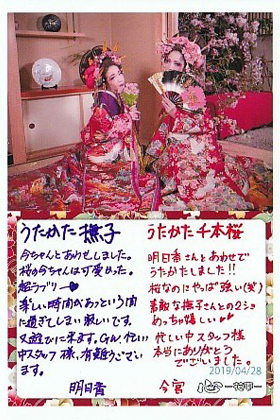 うたかた撫子
今ちゃんとあわせしました。
桜の今ちゃんは可愛かった。
超ラブリー♥
楽しい時間があっという間
に過ぎてしまい寂しいです。
又遊びに来ます。G.W.、忙しい
中スタッフ様、有難うござい
ます。
明日香
うたかた千本桜
明日香さんとあわせで
うたかたしました!!
桜なのにやば強い(笑)
素敵な撫子さんとの2ショ
めっちゃ嬉しい♥
忙しい中スタッフ様
本当にありがとう
ございました。
2019/04/28
今宮